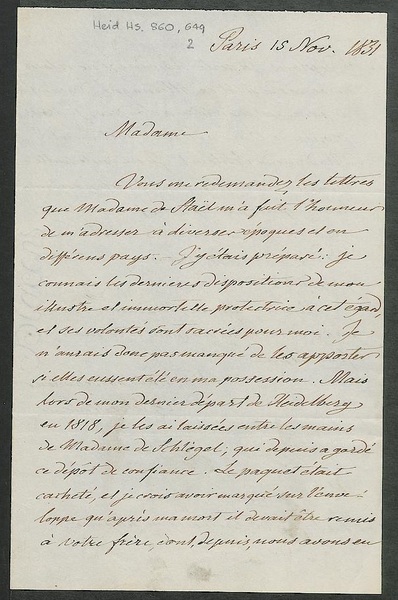 Heid Hs. 860, 649
2
Paris 15 Nov. 1831
Madame
Vous me redemandez les lettres
que Madame de Staël m'a fait l'honneur
de m'adresser à diverses époques et en
différens pays. J'y étais préparé: je
connais les dernières dispositions de mon
illustre et immortelle protectrice à cet égard,
et ses volontés sont sacrées pour moi. Je
n'aurais donc pas manqué de les apporter
si elles eussent été en ma possession. Mais
lors de mon dernier départ de Heidelberg
en 1818, je les ai laissées entre les mains
de Madame de Schlegel, qui depuis a gardé
ce dépôt de confiance. Le paquet était
cacheté, et je crois avoir marqué sur l'enve-
loppe qu'après ma mort il devait être remis
à votre frère, dont, depuis, nous avons eu